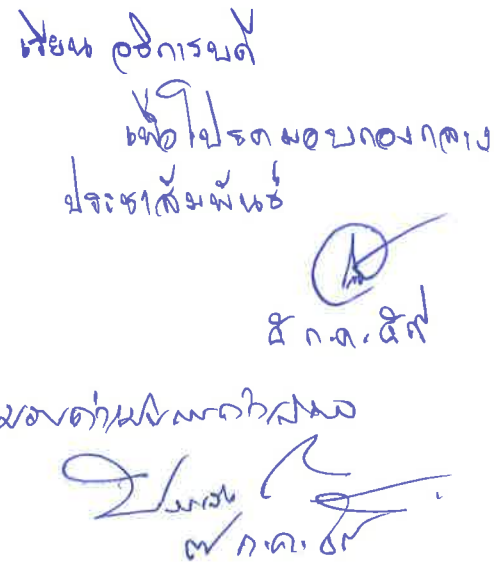 เรียน อธิการบดี
เพื่อโปรดมอบกองกลาง
ประชาสัมพันธ์
๕ ก.ค. ๕๗
มอบตามที่เสนอ
๗ ก.ค. ๕๗